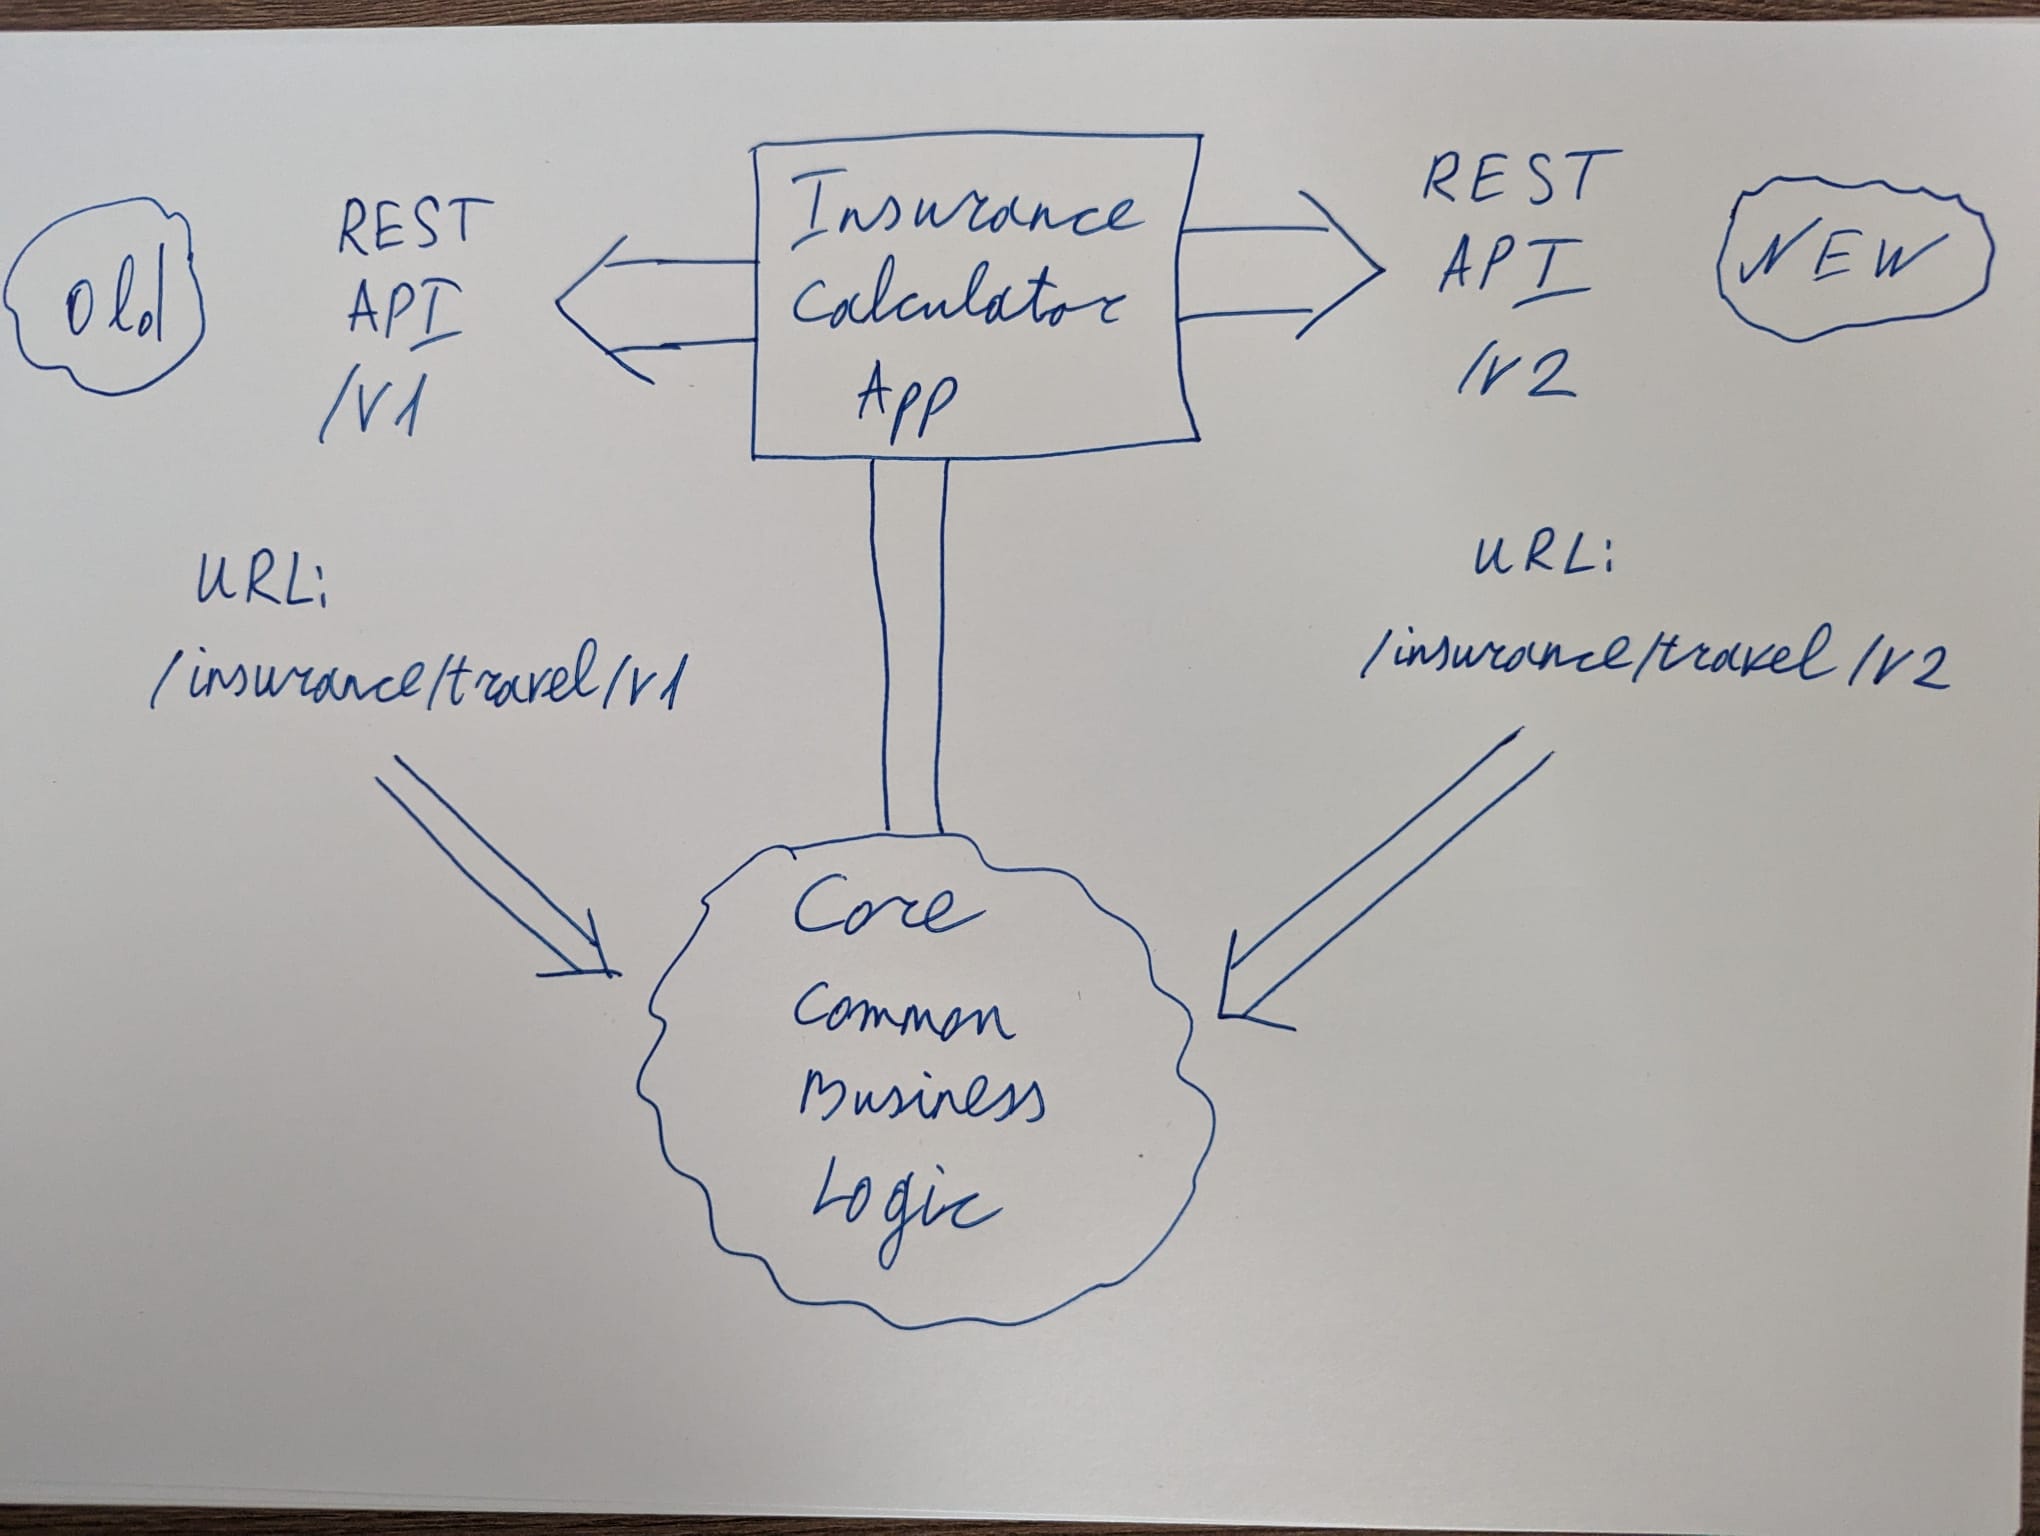 Old
REST
API
/v1
Insurance
Calculator
App
REST
API
/v2
NEW
URL:
/insurance/travel/v1
URL:
/insurance/travel/v2
Core
Common
Business
Logic